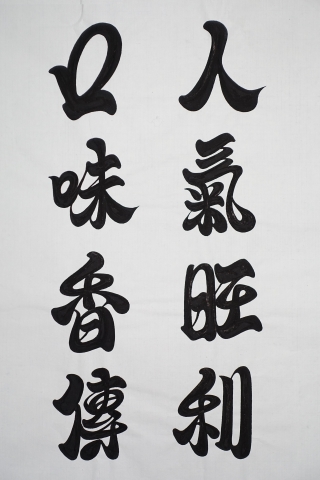 人氣旺利
口味香傳